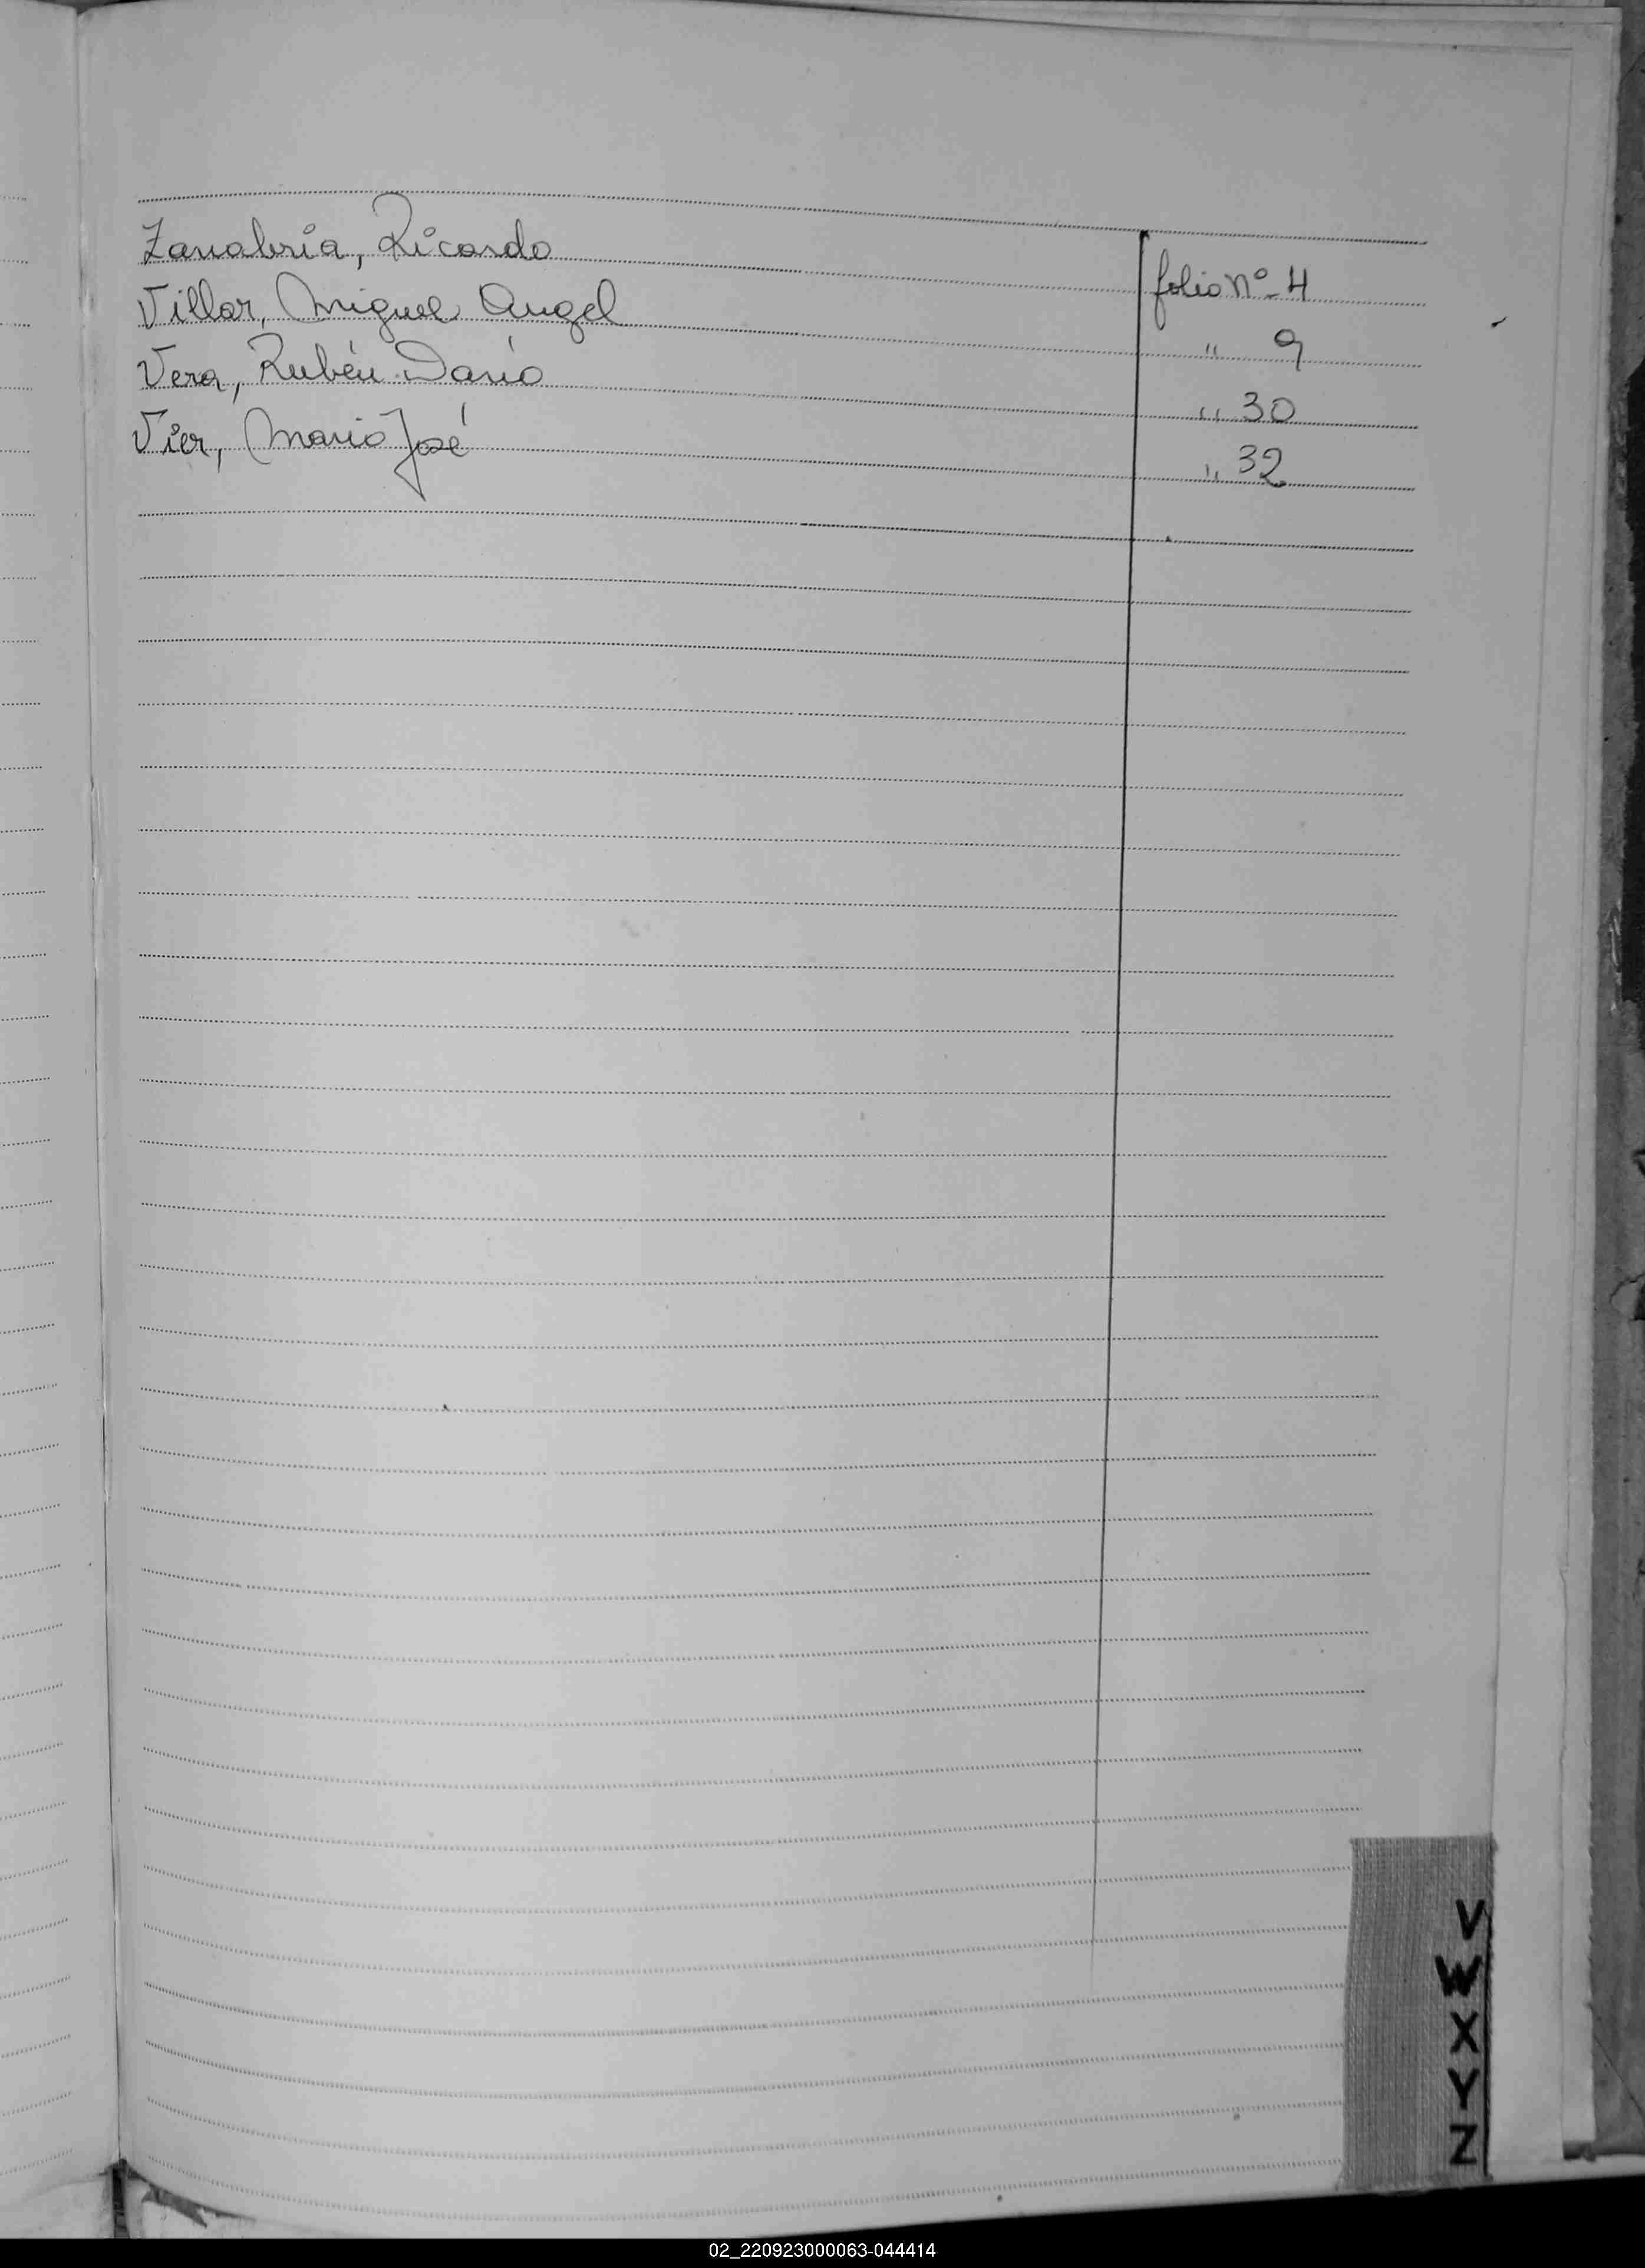 Zanabria, Ricardo folio nº 4
Villar, Miguel Angel " 9
Vera, Rubén Darío " 30
Vier, Mario José " 32
V
W
X
Y
Z
02_220923000063-044414